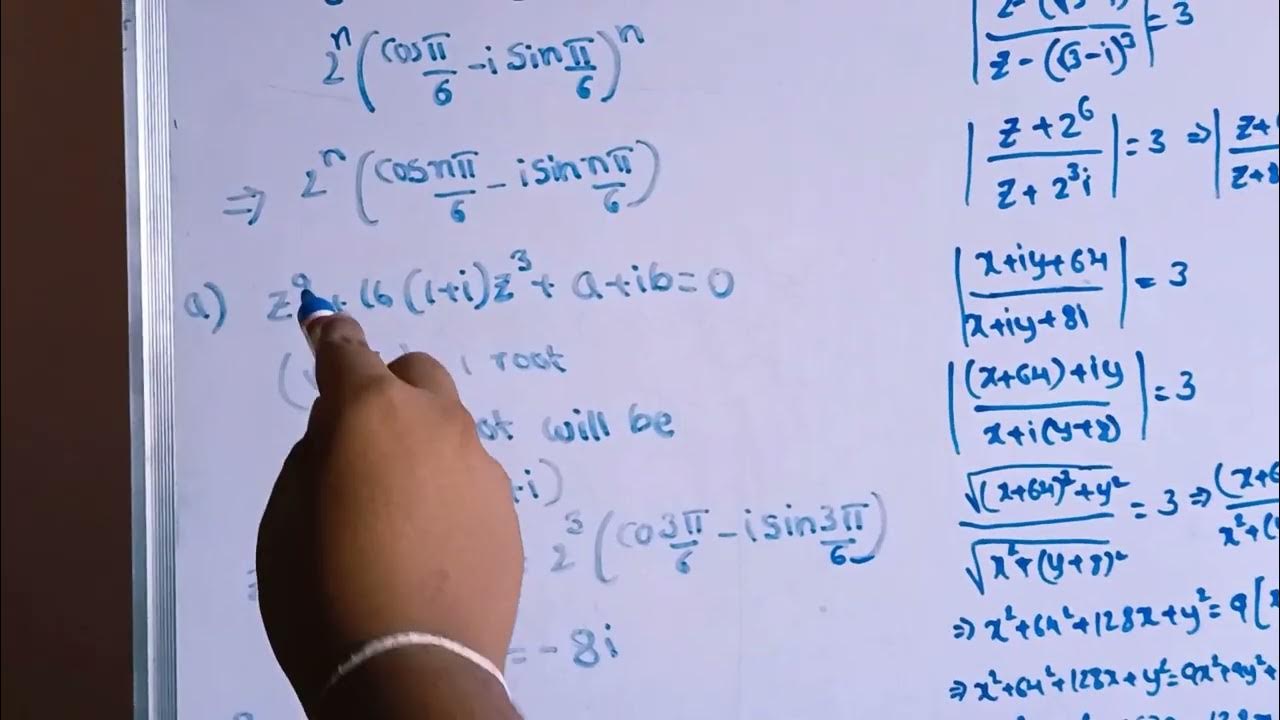 2^n (cos π/6 - i sin π/6)^n
⇒ 2^n (cos nπ/6 - i sin nπ/6)
a) z^9 + 16 (1+i) z^3 + a + ib = 0
root
will be
+i)
2^3 (co 3π/6 - i sin 3π/6)
= - 8i
z - (√3 - i)^3 | = 3
| (z + 2^6)/(z + 2^3 i) | = 3 ⇒ | z +
| (x + iy + 64)/(x + iy + 8i) | = 3
| ((x + 64) + iy)/(x + i(y + 8)) | = 3
√((x + 64)^2 + y^2)/√(x^2 + (y + 8)^2) = 3 ⇒ (x + 6
⇒ x^2 + 64^2 + 128x + y^2 = 9 [
⇒ x^2 + 64^2 + 128x + y^2 = 9x^2 + 9y^2 +